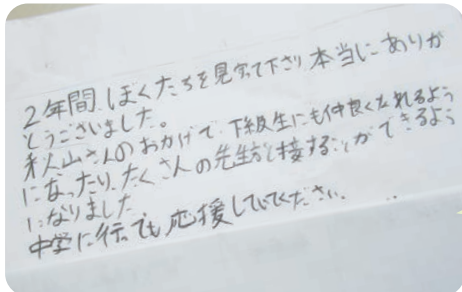 2年間ぼくたちを見守って下さり本当にありが
とうございました。
秋山さんのおかげで、下級生にも仲良くなれるよう
になったり、たくさんの先生方と接することができるよう
になりました
中学に行っても応援していてください。